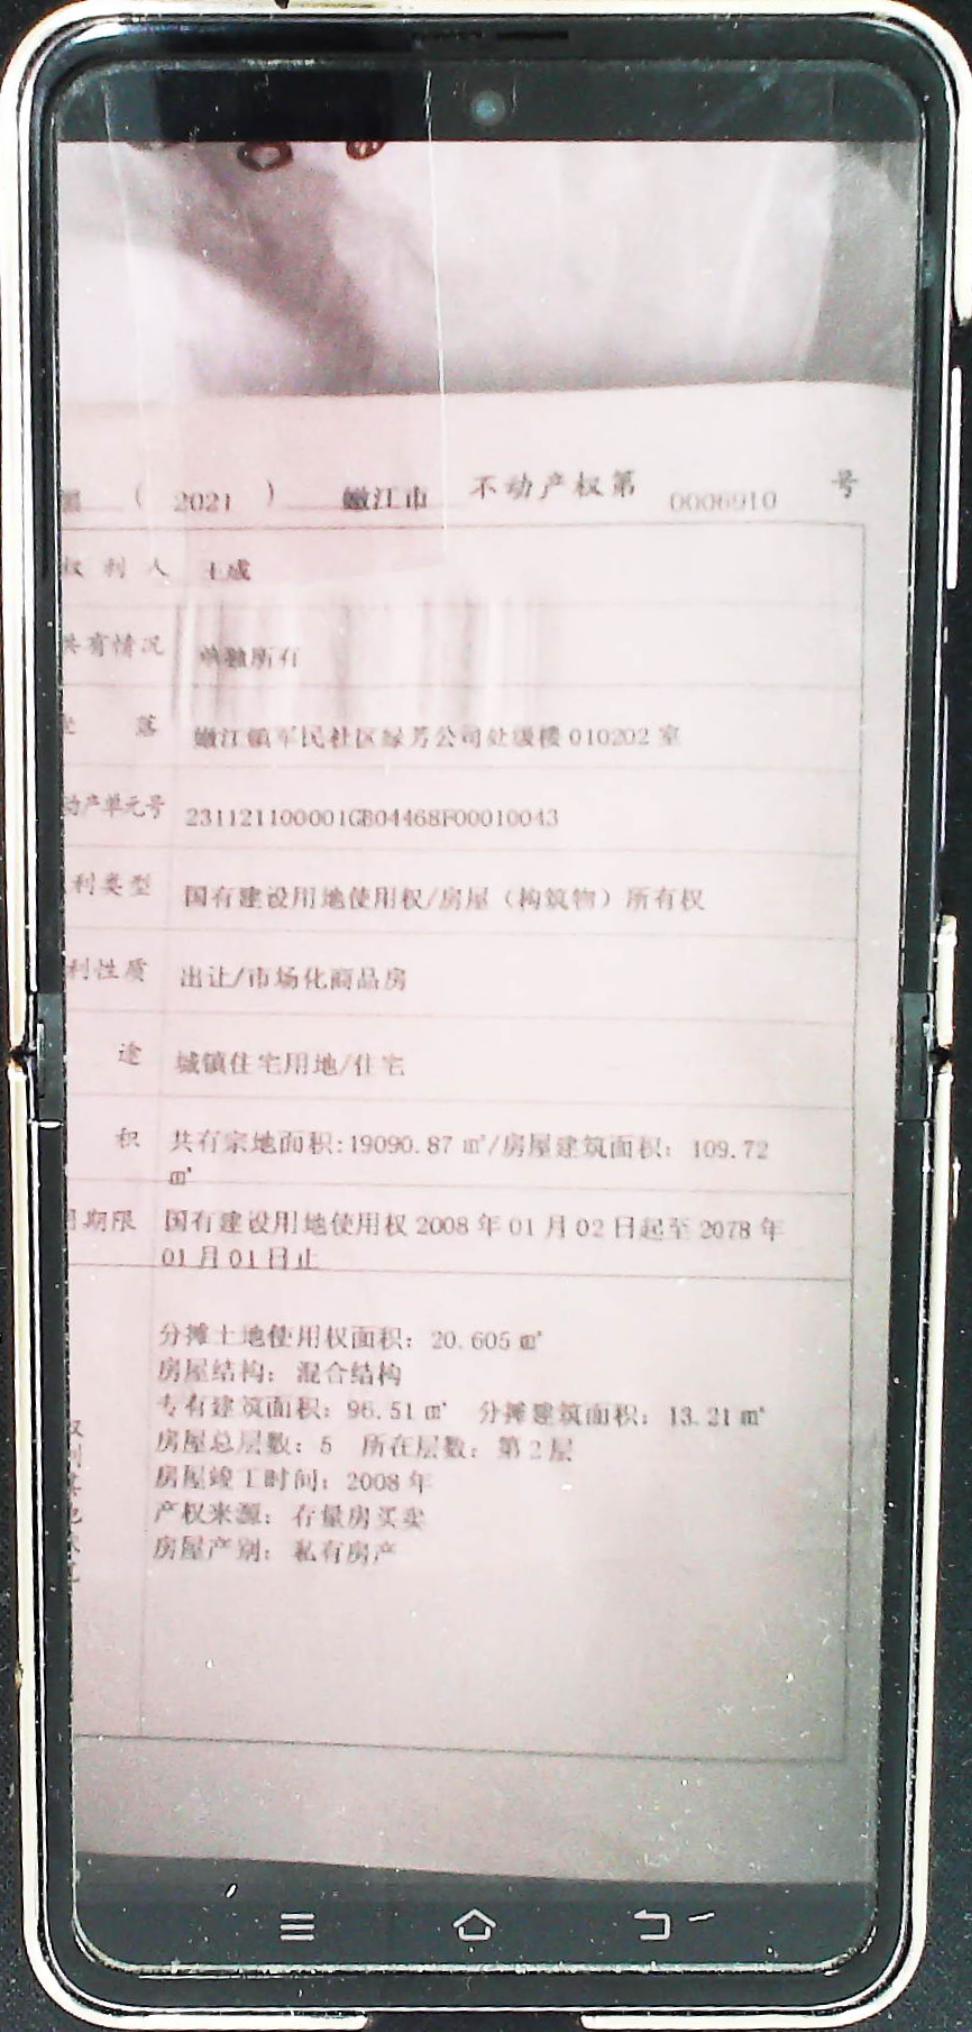 黑 ( 2021 ) 嫩江市 不动产权第 0006910 号
权利人 王成
共有情况 单独所有
坐落 嫩江镇军民社区绿芳公司处级楼010202室
动产单元号 231121100001GB04468F00010043
利类型 国有建设用地使用权/房屋（构筑物）所有权
利性质 出让/市场化商品房
途 城镇住宅用地/住宅
积 共有宗地面积:19090.87 ㎡/房屋建筑面积：109.72
㎡
用期限 国有建设用地使用权 2008 年 01 月 02 日起至 2078 年
01 月 01 日止
分摊土地使用权面积：20.605 ㎡
房屋结构：混合结构
专有建筑面积：96.51 ㎡ 分摊建筑面积：13.21 ㎡
房屋总层数：5 所在层数：第 2 层
房屋竣工时间：2008 年
产权来源：存量房买卖
房屋产别：私有房产